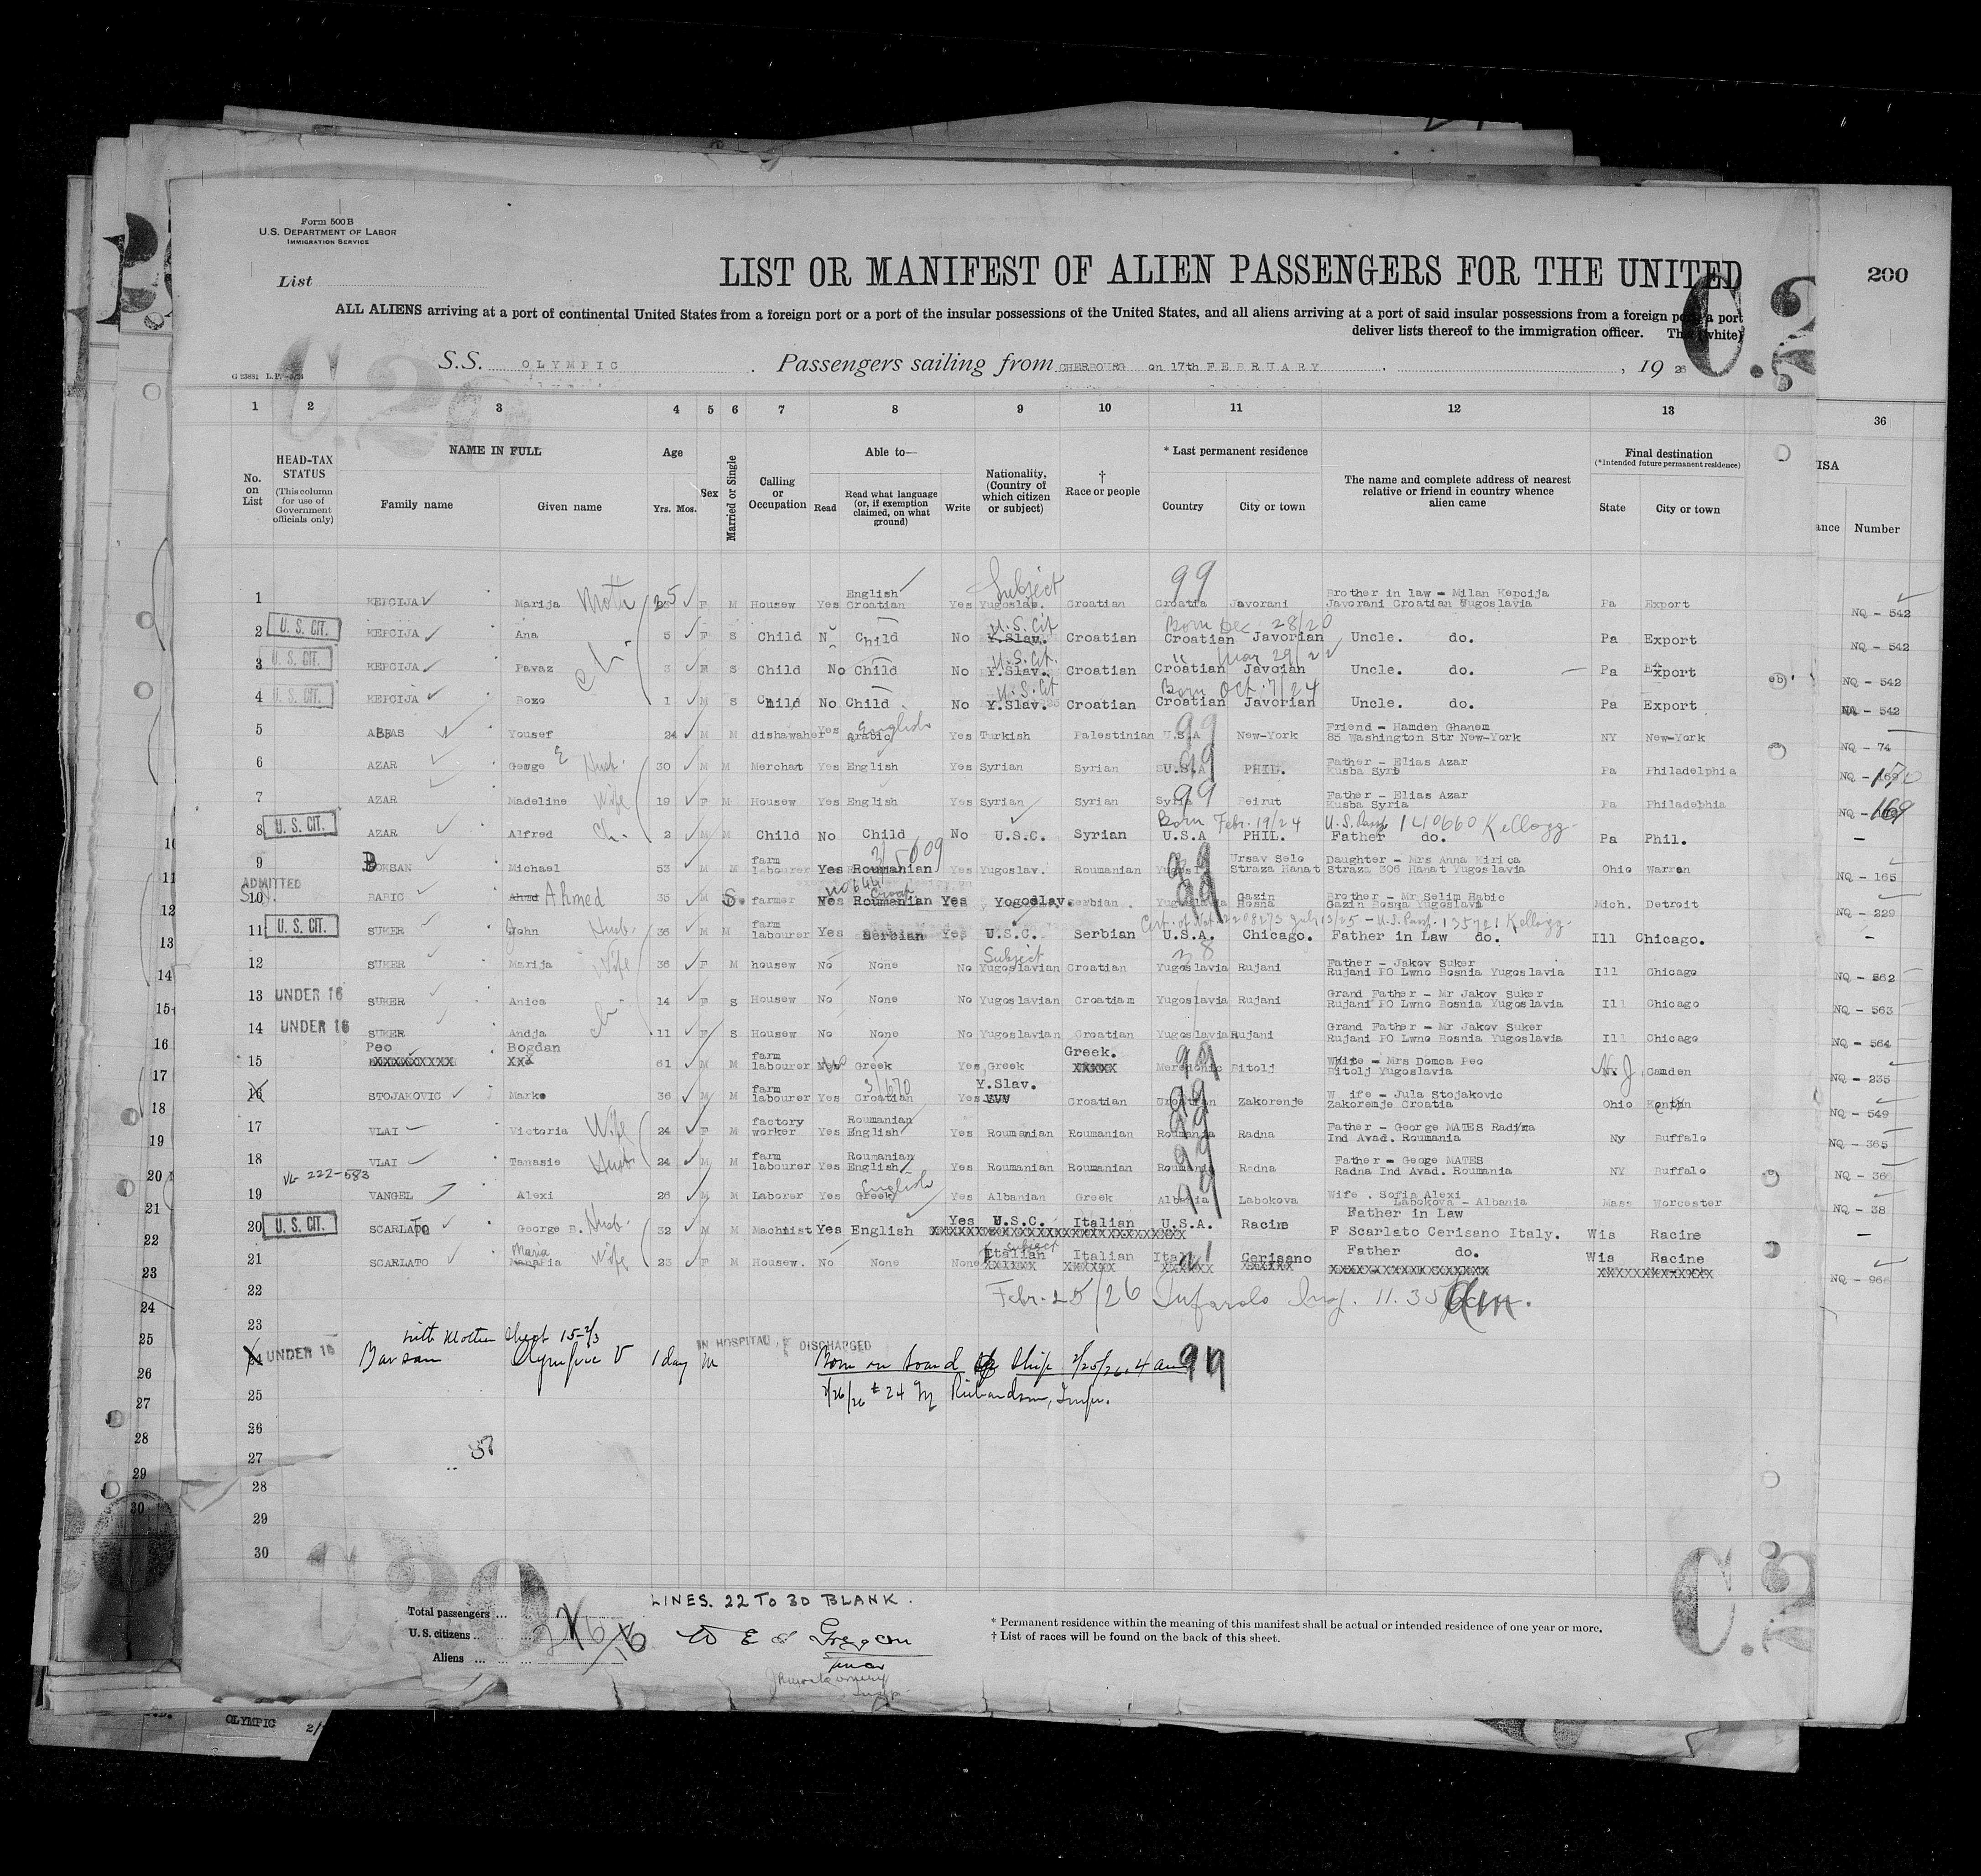 Form 500 B
U.S. DEPARTMENT OF LABOR
IMMIGRATION SERVICE
List
LIST OR MANIFEST OF ALIEN PASSENGERS FOR THE UNITED
200
ALL ALIENS arriving at a port of continental United States from a foreign port or a port of the insular possessions of the United States, and all aliens arriving at a port of said insular possessions from a foreign port, a port
deliver lists thereof to the immigration officer. This (white)
S.S. OLYMPIC . Passengers sailing from CHERBOURG on 17th FEBRUARY , 19 26
1 2 3 4 5 6 7 8 9 10 11 12 13 36
No. on List
HEAD-TAX STATUS (This column for use of Government officials only)
NAME IN FULL Family name Given name
Age Yrs. Mos.
Sex
Married or Single
Calling or Occupation
Able to— Read Read what language (or, if exemption claimed, on what ground) Write
Nationality, (Country of which citizen or subject)
† Race or people
* Last permanent residence Country City or town
The name and complete address of nearest relative or friend in country whence alien came
Final destination (*Intended future permanent residence) State City or town
Number
1 KEPCIJA Marija 35 F M Housew Yes English Croatian Yes Subject Yugoslav. Croatian 99 Croatia Javorani Brother in law - Milan Kepcija Javorani Croatian Yugoslavia Pa Export NQ - 542
2 U. S. CIT. KEPCIJA Ana 5 F S Child N Child No U.S. Cit Y.Slav. Croatian Born Dec 28/20 Croatian Javorian Uncle. do. Pa Export NQ - 542
3 U. S. CIT. KEPCIJA Pavaz 3 F S Child No Child No U.S. Cit. Y.Slav. Croatian " Mar 29/22 Croatian Javoian Uncle. do. Pa Export NQ - 542
4 U. S. CIT. KEPCIJA Bozo 1 M S Child No Child No U.S. Cit Y.Slav. Croatian Born Oct. 7/24 Croatian Javorian Uncle. do. Pa Export NQ - 542
5 ABBAS Yousef 24 M M dishawaher Yes English Arabic Yes Turkish Palestinian 99 U.S.A New-York Friend - Hamden Ghanem 85 Washington Str New-York NY New-York NQ - 74
6 AZAR George Husb. 30 M M Merchant Yes English Yes Syrian Syrian 99 U.S.A PHIL. Father - Elias Azar Kusba Syria Pa Philadelphia NQ - 170
7 AZAR Madeline Wife 19 F M Housew Yes English Yes Syrian Syrian 99 Syria Beirut Father - Elias Azar Kusba Syria Pa Philadelphia NQ - 169
8 U. S. CIT. AZAR Alfred ch. 2 M M Child No Child No U.S.C. Syrian Born Febr. 19/24 U.S.A PHIL. U.S. Passp 140660 Kellogg Father do. Pa Phil. -
9 BORSAN Michael 53 M M farm labourer Yes Roumanian Yes Yugoslav. Roumanian 99 Ursav Selo Straza Hanat Daughter - Mrs Anna Kirica Straza 306 Hanat Yugoslavia Ohio Warren NQ - 165
ADMITTED
10 BABIC Ahmed 35 M S. farmer Yes Roumanian Yes Yogoslav. Serbian 99 Yugoslavia Gazin Bosna Brother - Mr Selim Babic Gazin Bosna Yugoslavia Mich. Detroit NQ - 229
11 U. S. CIT. SUKER John Husb. 36 M M farm labourer Yes Serbian Yes U.S.C. Serbian Cert. of Nat. 2208273 July 13/25 - U.S. Passp. 135721 Kellogg U.S.A. Chicago. Father in Law do. Ill Chicago. -
12 SUKER Marija Wife 36 F M housew No None No Subject Yugoslavian Croatian 38 Yugoslavia Rujani Father - Jakov Suker Rujani PO Lwno Bosnia Yugoslavia Ill Chicago NQ - 562
13 UNDER 16 SUKER Anica 14 F S Housew No None No Yugoslavian Croatiam Yugoslavia Rujani Grand Father - Mr Jakov Suker Rujani PO Lwno Bosnia Yugoslavia Ill Chicago NQ - 563
14 UNDER 16 SUKER Andja 11 F S Housew No None No Yugoslavian Croatian Yugoslavia Rujani Grand Father - Mr Jakov Suker Rujani PO Lwno Bosnia Yugoslavia Ill Chicago NQ - 564
15 Peo Bogdan 61 M M farm labourer Greek Yes Greek Greek. 99 Bitolj Wife - Mrs Domca Peo Bitolj Yugoslavia NJ Camden NQ - 235
16 STOJAKOVIC Marko 36 M M farm labourer Yes Croatian Yes Y.Slav. Croatian 99 Croatian Zakorenje Wife - Jula Stojakovic Zakorenje Croatia Ohio Canton NQ - 549
17 VLAI Victoria Wife 24 F M factory worker Yes Roumanian English Yes Roumanian Roumanian 99 Roumania Radna Father - George MATES Radna Ind Avad. Roumania Ny Buffalo NQ - 365
18 VLAI Tanasie Husb 24 M M farm labourer Yes Roumanian English Yes Roumanian Roumanian 99 Roumania Radna Father - Geoge MATES Radna Ind Avad. Roumania NY Buffalo NQ - 36
VL 222-583
19 VANGEL Alexi 26 M M Laborer Yes English Greek Yes Albanian Greek 99 Albania Labokova Wife . Sofia Alexi Labokova - Albania Mass Worcester NQ - 38
20 U. S. CIT. SCARLATO George B. Husb. 32 M M Machtist Yes English Yes U.S.C. Italian U.S.A. Racine Father in Law F Scarlato Cerisano Italy. Wis Racine -
21 SCARLATO Maria Wife 23 F M Housew. No None None Subject Italian Italian Italy Cerisano Father do. Wis Racine NQ - 966
22 Febr. 25/26 Insp. 11.35
23
with Mother Sheet 15-2/3
IN HOSPITAL DISCHARGED
24 UNDER 16 Barsan Olympic V 1 day M Born on board of Ship 2/25/26. 4 am 99
2/26/26 # 24 Richardson, Inspr.
25
26
27
28
29
30
LINES. 22 TO 30 BLANK.
Total passengers ...
U. S. citizens ...
Aliens ...
* Permanent residence within the meaning of this manifest shall be actual or intended residence of one year or more.
† List of races will be found on the back of this sheet.
OLYMPIC